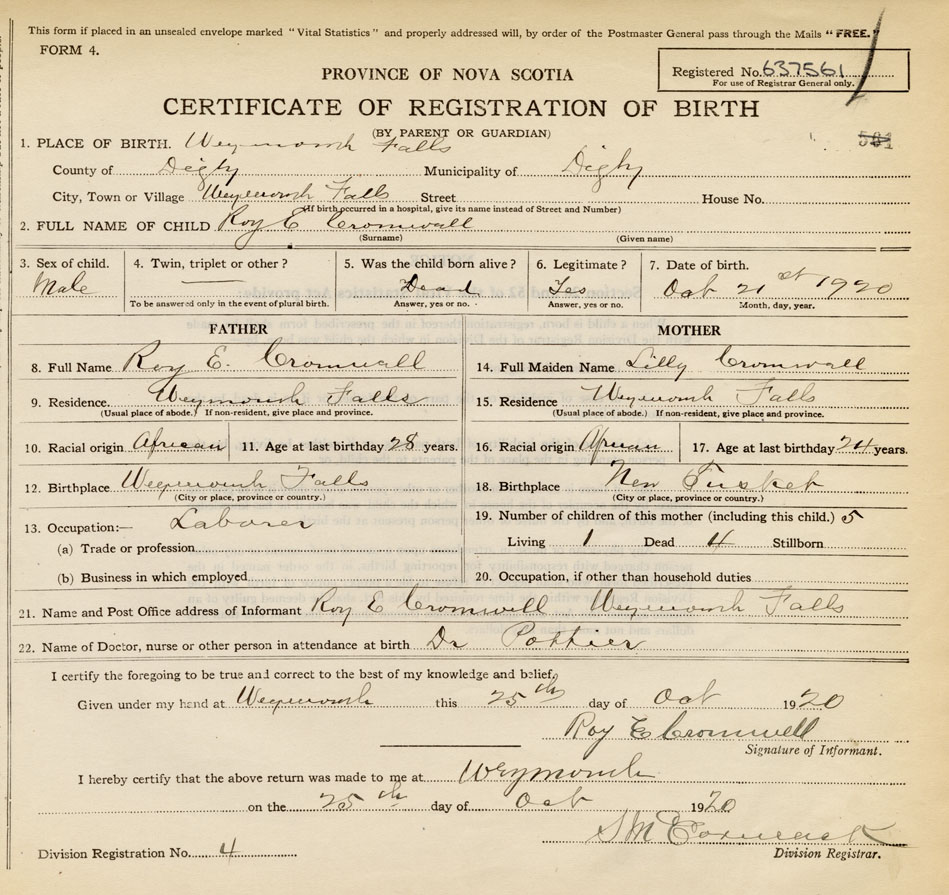 This form if placed in an unsealed envelope marked "Vital Statistics" and properly addressed will, by order of the Postmaster General pass through the Mails "FREE."
FORM 4.
Registered No. 637561
For use of Registrar General only.
PROVINCE OF NOVA SCOTIA
CERTIFICATE OF REGISTRATION OF BIRTH
(BY PARENT OR GUARDIAN)
501
1. PLACE OF BIRTH. Weymouth Falls
County of Digby Municipality of Digby
City, Town or Village Weymouth Falls Street House No.
(If birth occurred in a hospital, give its name instead of Street and Number)
2. FULL NAME OF CHILD Roy E Cromwall
(Surname) (Given name)
3. Sex of child. 4. Twin, triplet or other? 5. Was the child born alive? 6. Legitimate? 7. Date of birth.
Male Dead Yes Oct 21st 1920
To be answered only in the event of plural birth. Answer, yes or no. Answer, yes or no. Month, day, year.
FATHER MOTHER
8. Full Name Roy E. Cromwall 14. Full Maiden Name Lilly Cromwall
9. Residence. Weymouth Falls 15. Residence Weymouth Falls
(Usual place of abode.) If non-resident, give place and province. (Usual place of abode.) If non-resident, give place and province.
10. Racial origin African 11. Age at last birthday 28 years. 16. Racial origin African 17. Age at last birthday 24 years.
12. Birthplace Weymouth Falls 18. Birthplace New Tusket
(City or place, province or country.) (City or place, province or country.)
13. Occupation:— Laborer 19. Number of children of this mother (including this child.) 5
(a) Trade or profession Living 1 Dead 4 Stillborn
(b) Business in which employed 20. Occupation, if other than household duties
21. Name and Post Office address of Informant Roy E Cromwell Weymouth Falls
22. Name of Doctor, nurse or other person in attendance at birth Dr Pottier
I certify the foregoing to be true and correct to the best of my knowledge and belief.
Given under my hand at Weymouth this 25th day of Oct 1920
Roy E Cromwell
Signature of Informant.
I hereby certify that the above return was made to me at Weymouth
on the 25th day of Oct 1920
S McCormack
Division Registration No. 4 Division Registrar.